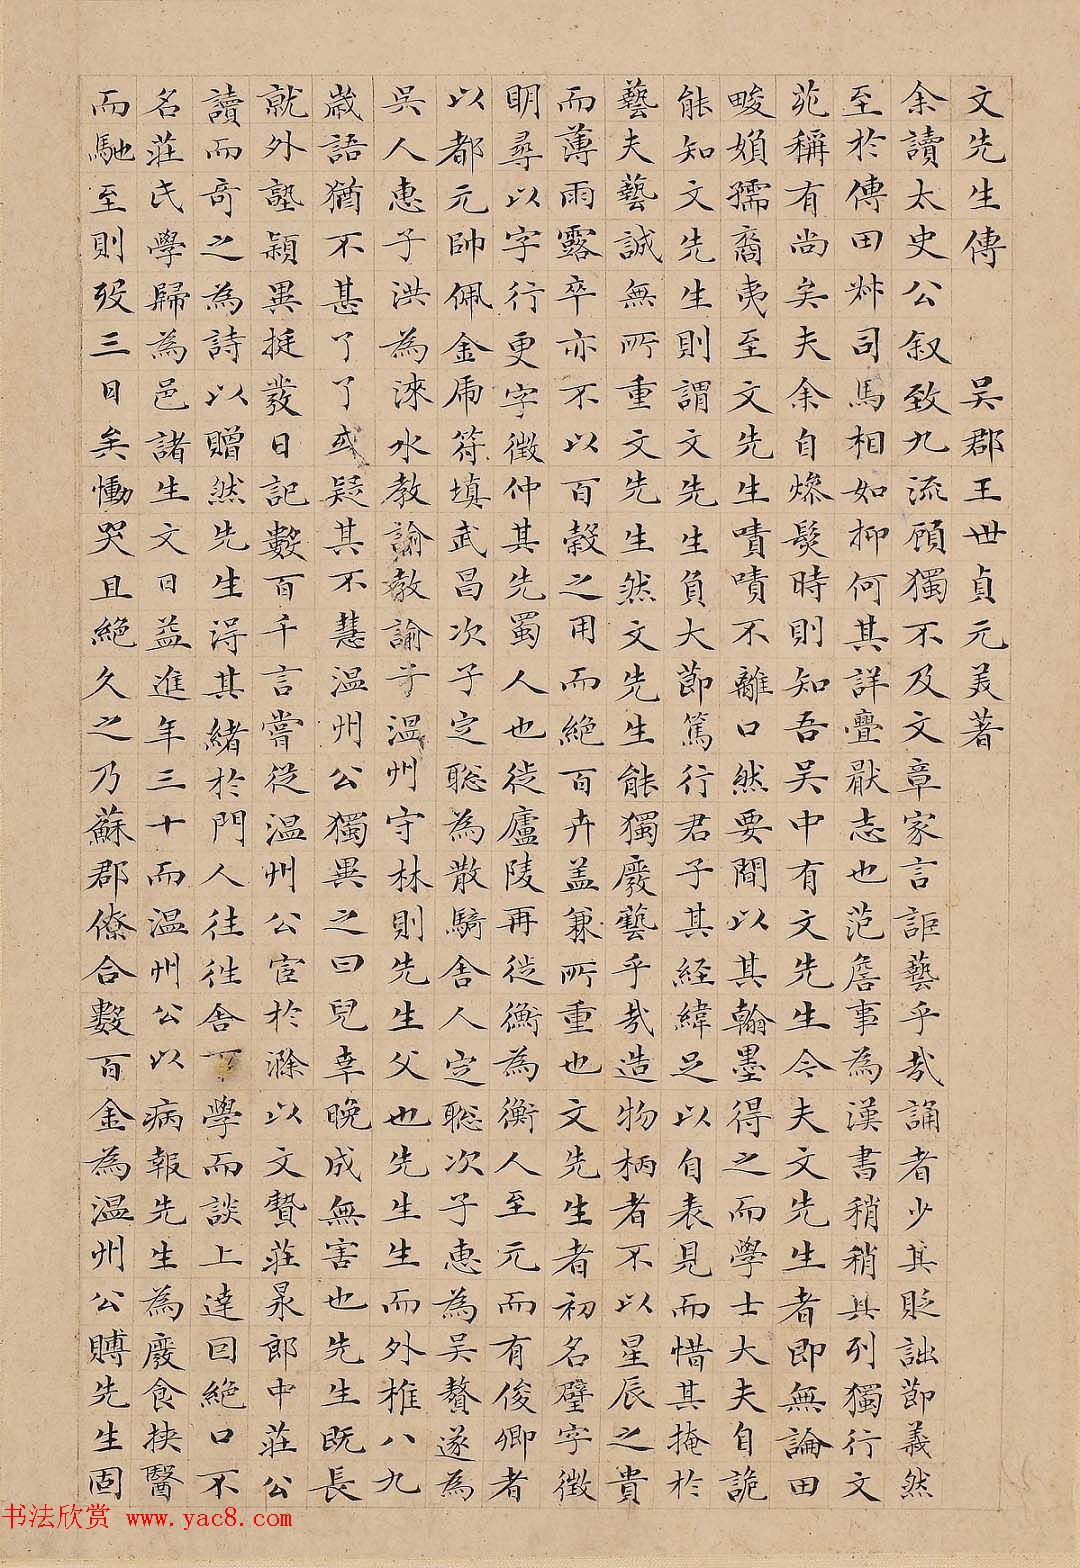 文先生傳 吳郡王世貞元美著
余讀太史公叙致九流顧獨不及文章家言詎藝乎哉誦者少其貶詘節義然
至於傳田叔司馬相如抑何其詳疊猒志也范詹事為漢書稍稍具列獨行文
苑稱有尚矣夫余自燥髮時則知吾吳中有文先生今夫文先生者即無論田
畯嬪孺裔夷至文先生嘖嘖不離口然要間以其翰墨得之而學士大夫自詭
能知文先生則謂文先生負大節篤行君子其經緯足以自表見而惜其掩於
藝夫藝誠無所重文先生然文先生能獨廢藝乎哉造物柄者不以星辰之貴
而薄雨露卒亦不以百榖之用而絕百卉盖兼所重也文先生者初名璧字徵
明尋以字行更字徵仲其先蜀人也徙廬陵再徙衡為衡人至元而有俊卿者
以都元帥佩金虎符填武昌次子定聰為散騎舍人定聰次子惠為吳贅遂為
吳人惠子洪為淶水教諭教諭子温州守林則先生父也先生生而外椎八九
歲語猶不甚了了或疑其不慧温州公獨異之曰兒幸晚成無害也先生既長
就外塾穎異挺發日記數百千言嘗從温州公宦於滁以文贄莊㫤郎中莊公
讀而奇之為詩以贈然先生淂其緒於門人往往舍下學而談上達回絕口不
名莊氏學歸為邑諸生文日益進年三十而温州公以病報先生為廢食挾醫
而馳至則歿三日矣慟哭且絕久之乃蘇郡僚合數百金為温州公賻先生固
书法欣赏 www.yac8.com